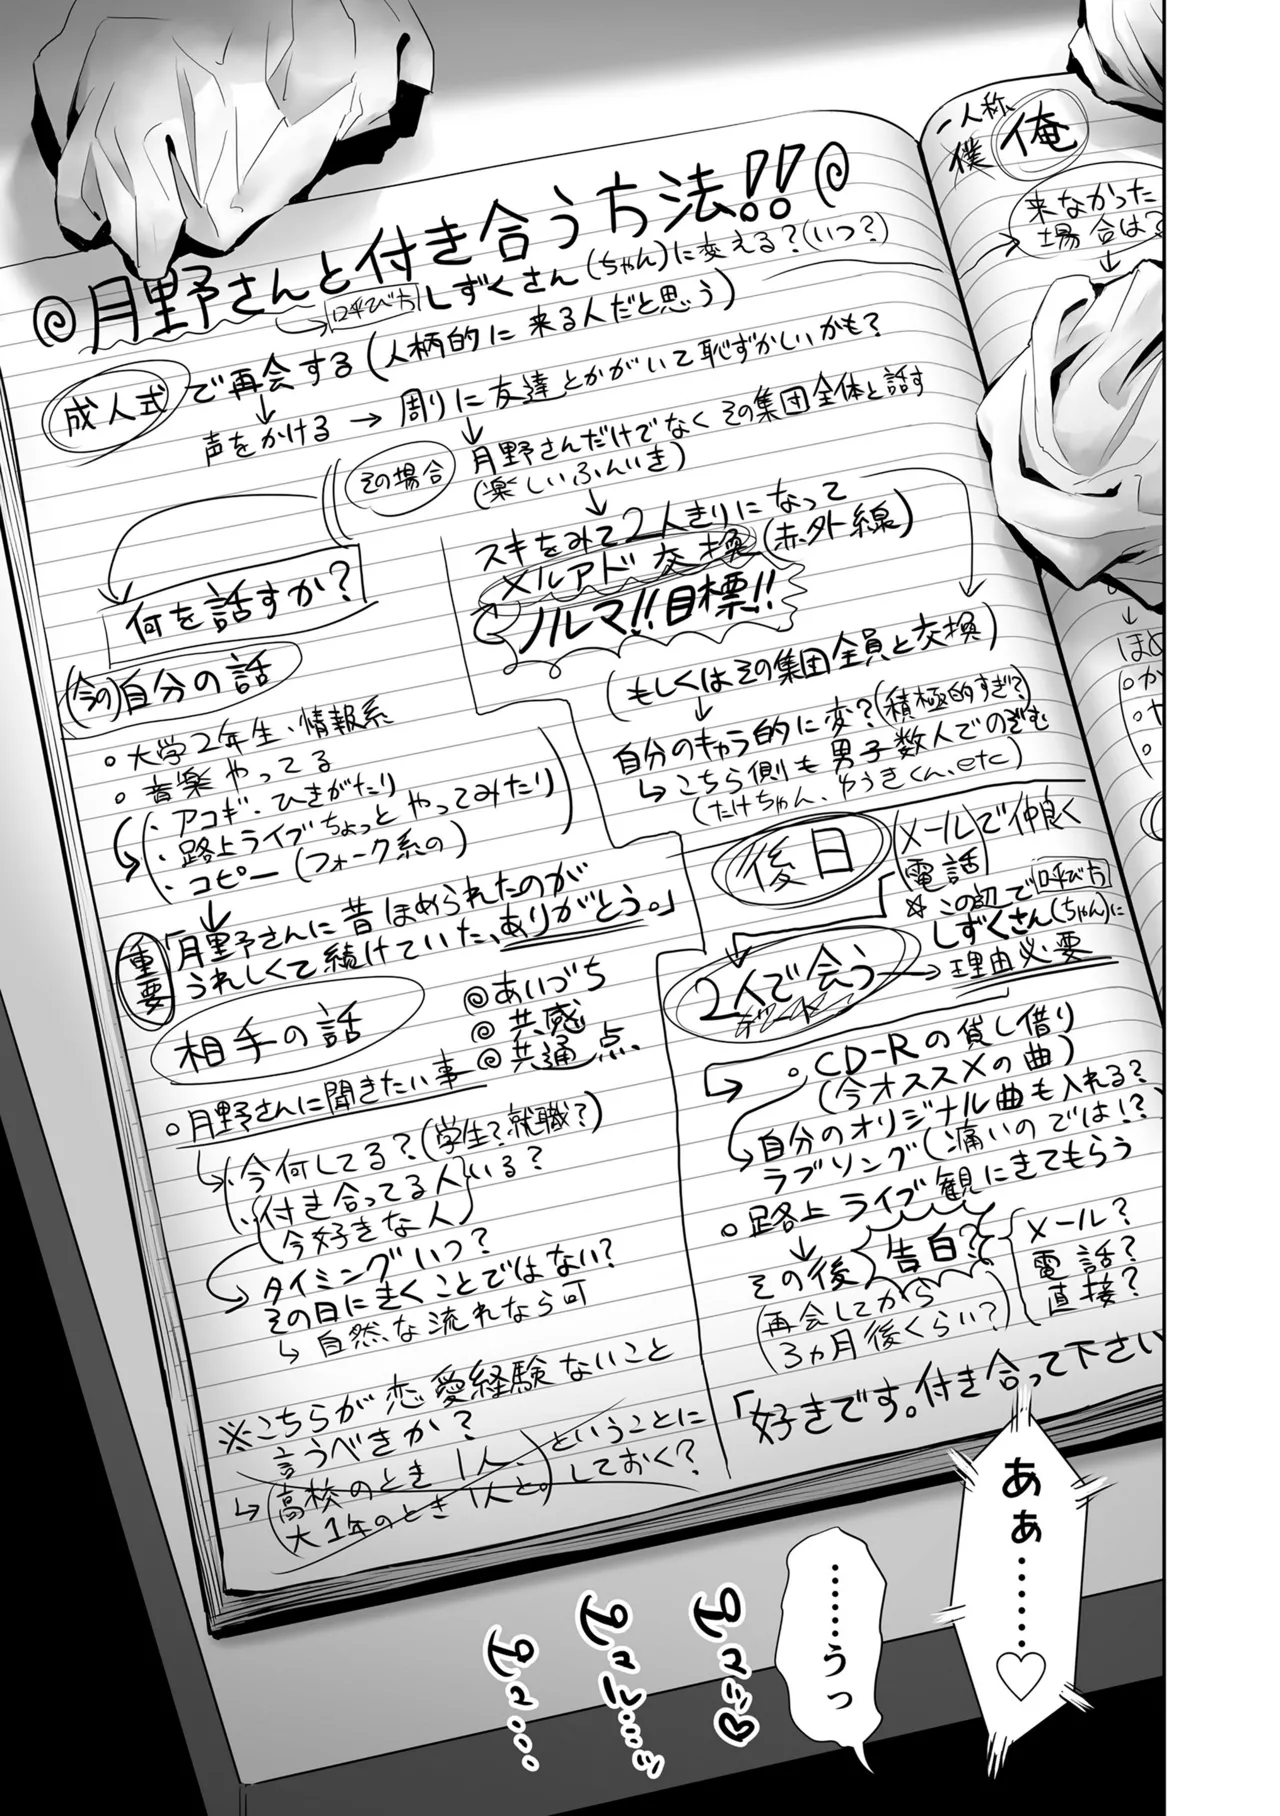 ◎月野さんと付き合う方法!!◎
呼び方 しずくさん(ちゃん)に変える?(いつ?)
成人式で再会する(人柄的に来る人だと思う)
声をかける→周りに友達とかがいて恥ずかしいかも?
その場合
月野さんだけでなくその集団全体と話す
(楽しいふんいき)
スキをみて2人きりになって
メルアド交換(赤外線)
ノルマ!!目標!!
(もしくはその集団全員と交換)
自分のキャラ的に変?(積極的すぎ?)
こちら側も男子数人でのぞむ
(たけちゃん、ゆうきくん、etc)
何を話すか?
(今の)自分の話
○大学2年生・情報系
○音楽やってる
・アコギ・ひきがたり
・路上ライブちょっとやってみたり
・コピー(フォーク系の)
重要
「月野さんに昔ほめられたのが
うれしくて続けていた、ありがとう。」
相手の話
◎あいづち
◎共感
◎共通点
○月野さんに聞きたい事
・今何してる?(学生?就職?)
・付き合ってる人いる?
今好きな人
タイミングいつ?
その日にきくことではない?
自然な流れなら可
※こちらが恋愛経験ないこと
言うべきか?
高校のとき1人、
大1年のとき1人と。
ということに
しておく?
後日
メール
電話
で仲良く
☆この辺で呼び方
しずくさん(ちゃん)に
2人で会う
デート
理由必要
○CD-Rの貸し借り
(今オススメの曲)
自分のオリジナル曲も入れる?
ラブソング(痛いのでは!?
○路上ライブ観にきてもらう
その後告白?
(再会してから
3ヵ月後くらい?)
メール?
電話?
直接?
「好きです。付き合って下さい
一人称
僕 俺
来なかった
場合は?
ほめ
○か
あぁ………♡
……うっ